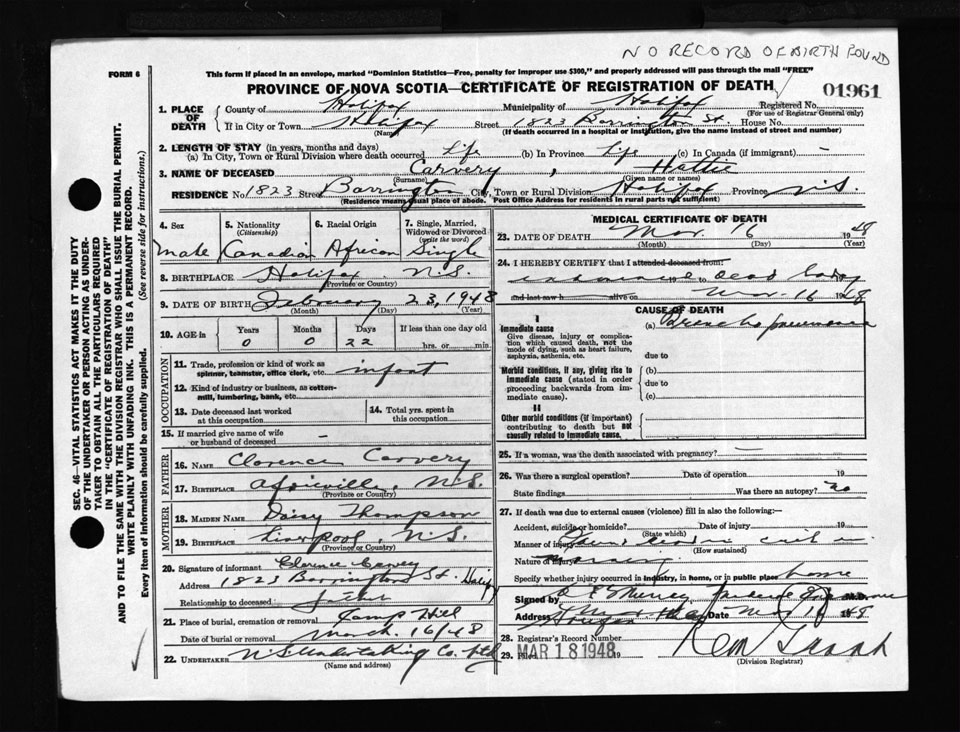 NO RECORD OF BIRTH FOUND
FORM 6
This form if placed in an envelope, marked "Dominion Statistics—Free, penalty for improper use $300," and properly addressed will pass through the mail "FREE"
PROVINCE OF NOVA SCOTIA—CERTIFICATE OF REGISTRATION OF DEATH
01961
1. PLACE OF DEATH
County of Halifax Municipality of Halifax Registered No.
(For use of Registrar General only)
If in City or Town Halifax Street 1823 Barrington St. House No.
(Name) (If death occurred in a hospital or institution, give the name instead of street and number)
2. LENGTH OF STAY (in years, months and days)
(a) In City, Town or Rural Division where death occurred Life (b) In Province Life (c) In Canada (if immigrant) —
3. NAME OF DECEASED Carvery, Hattie
(Surname) (Given name or names)
RESIDENCE No 1823 Street Barrington City, Town or Rural Division Halifax Province N.S.
(Residence means usual place of abode. Post Office Address for residents in rural parts not sufficient)
4. Sex male
5. Nationality (Citizenship) Canadian
6. Racial Origin African
7. Single, Married, Widowed or Divorced (write the word) Single
8. BIRTHPLACE Halifax N.S.
(Province or Country)
9. DATE OF BIRTH February 23, 1948
(Month) (Day) (Year)
10. AGE in Years 0 Months 0 Days 22 If less than one day old hrs. or min.
OCCUPATION
11. Trade, profession or kind of work as spinner, teamster, office clerk, etc. infant
12. Kind of industry or business, as cotton-mill, lumbering, bank, etc.
13. Date deceased last worked at this occupation
14. Total yrs. spent in this occupation
15. If married give name of wife or husband of deceased —
FATHER
16. NAME Clarence Carvery
17. BIRTHPLACE Africville, N.S.
(Province or Country)
MOTHER
18. MAIDEN NAME Daisy Thompson
19. BIRTHPLACE Liverpool, N.S.
(Province or Country)
20. Signature of informant Clarence Carvery
Address 1823 Barrington St. Halifax
Relationship to deceased father
21. Place of burial, cremation or removal Camp Hill
Date of burial or removal March 16/48
22. UNDERTAKER N.S. Undertaking Co. Ltd
(Name and address)
MEDICAL CERTIFICATE OF DEATH
23. DATE OF DEATH Mar. 16 1948
(Month) (Day) (Year)
24. I HEREBY CERTIFY that I attended deceased from:
dead body
and last saw h alive on Mar 16 1948
CAUSE OF DEATH
I
Immediate cause
Give disease, injury or complication which caused death, not the mode of dying, such as heart failure, asphyxia, asthenia, etc.
(a) Broncho pneumonia
due to
Morbid conditions, if any, giving rise to immediate cause (stated in order proceeding backwards from immediate cause).
(b)
due to
(c)
II
Other morbid conditions (if important) contributing to death but not causally related to immediate cause.
25. If a woman, was the death associated with pregnancy? —
26. Was there a surgical operation? Date of operation 19
State findings Was there an autopsy? no
27. If death was due to external causes (violence) fill in also the following:—
Accident, suicide or homicide? Date of injury 19
(State which)
Manner of injury
(How sustained)
Nature of injury
Specify whether injury occurred in industry, in home, or in public place home
Signed by
Address Date Mar 18 1948
28. Registrar's Record Number
29. Filed MAR 18 1948 19
(Division Registrar)
SEC. 46—VITAL STATISTICS ACT MAKES IT THE DUTY
OF THE UNDERTAKER OR PERSON ACTING AS UNDER-
TAKER TO OBTAIN ALL THE PARTICULARS REQUIRED
IN THE "CERTIFICATE OF REGISTRATION OF DEATH"
AND TO FILE THE SAME WITH THE DIVISION REGISTRAR WHO SHALL ISSUE THE BURIAL PERMIT.
WRITE PLAINLY WITH UNFADING INK. THIS IS A PERMANENT RECORD.
Every item of information should be carefully supplied. (See reverse side for instructions.)